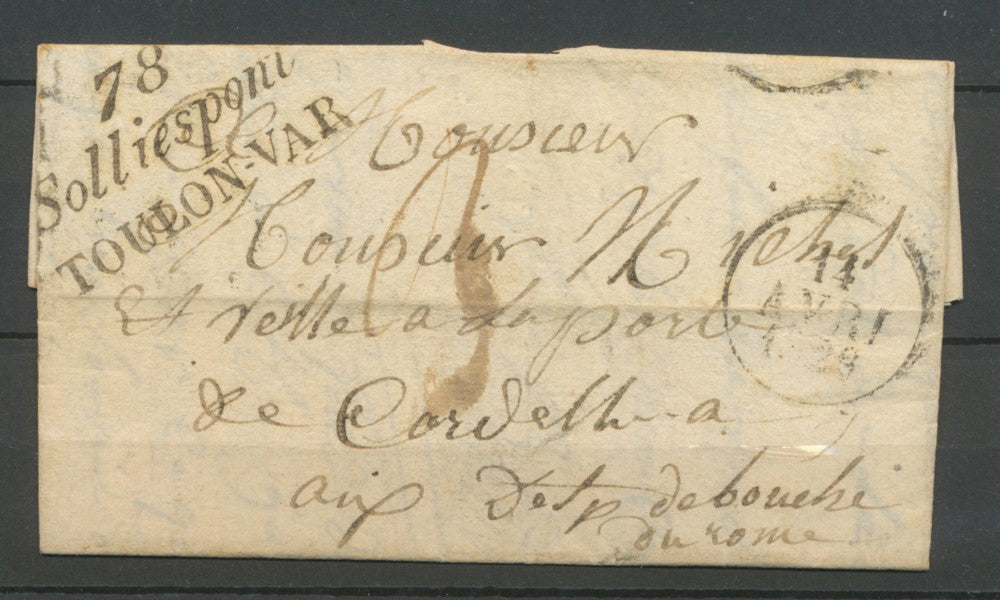 78
Solliespont
TOULON-VAR
A Monsieur
Monsieur Michel
Et veille a La porte
de Cordelle a
aix Dep debouche
du rome
14
AVRI
1828